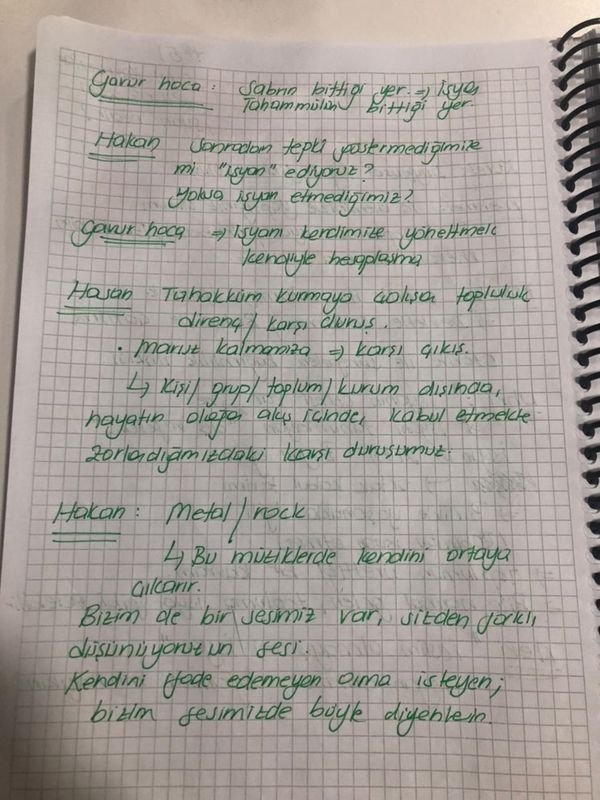 Gavur hoca : Sabrın bittiği yer. ⇒ isyan
Tahammülün bittiği yer
Hakan Sonradan tepki göstermediğimize
mi "isyan" ediyoruz?
Yoksa isyan etmediğimiz?
Gavur hoca ⇒ isyanı kendimize yöneltmek
kendiyle hesaplaşma
Hasan Tahakküm kurmaya çalışan topluluk
direnç / karşı duruş.
• Maruz kalmamıza ⇒ karşı çıkış.
↳ Kişi / grup / toplum / kurum dışında,
hayatın olağan akışı içinde, kabul etmekte
zorlandığımızdaki karşı duruşumuz.
Hakan : Metal / rock
↳ Bu müziklerde kendini ortaya
çıkarır.
Bizim de bir sesimiz var, sizden farklı
düşünüyoruzun sesi.
Kendini ifade edemeyen ama isteyen;
bizim sesimizde böyle diyenlerin.